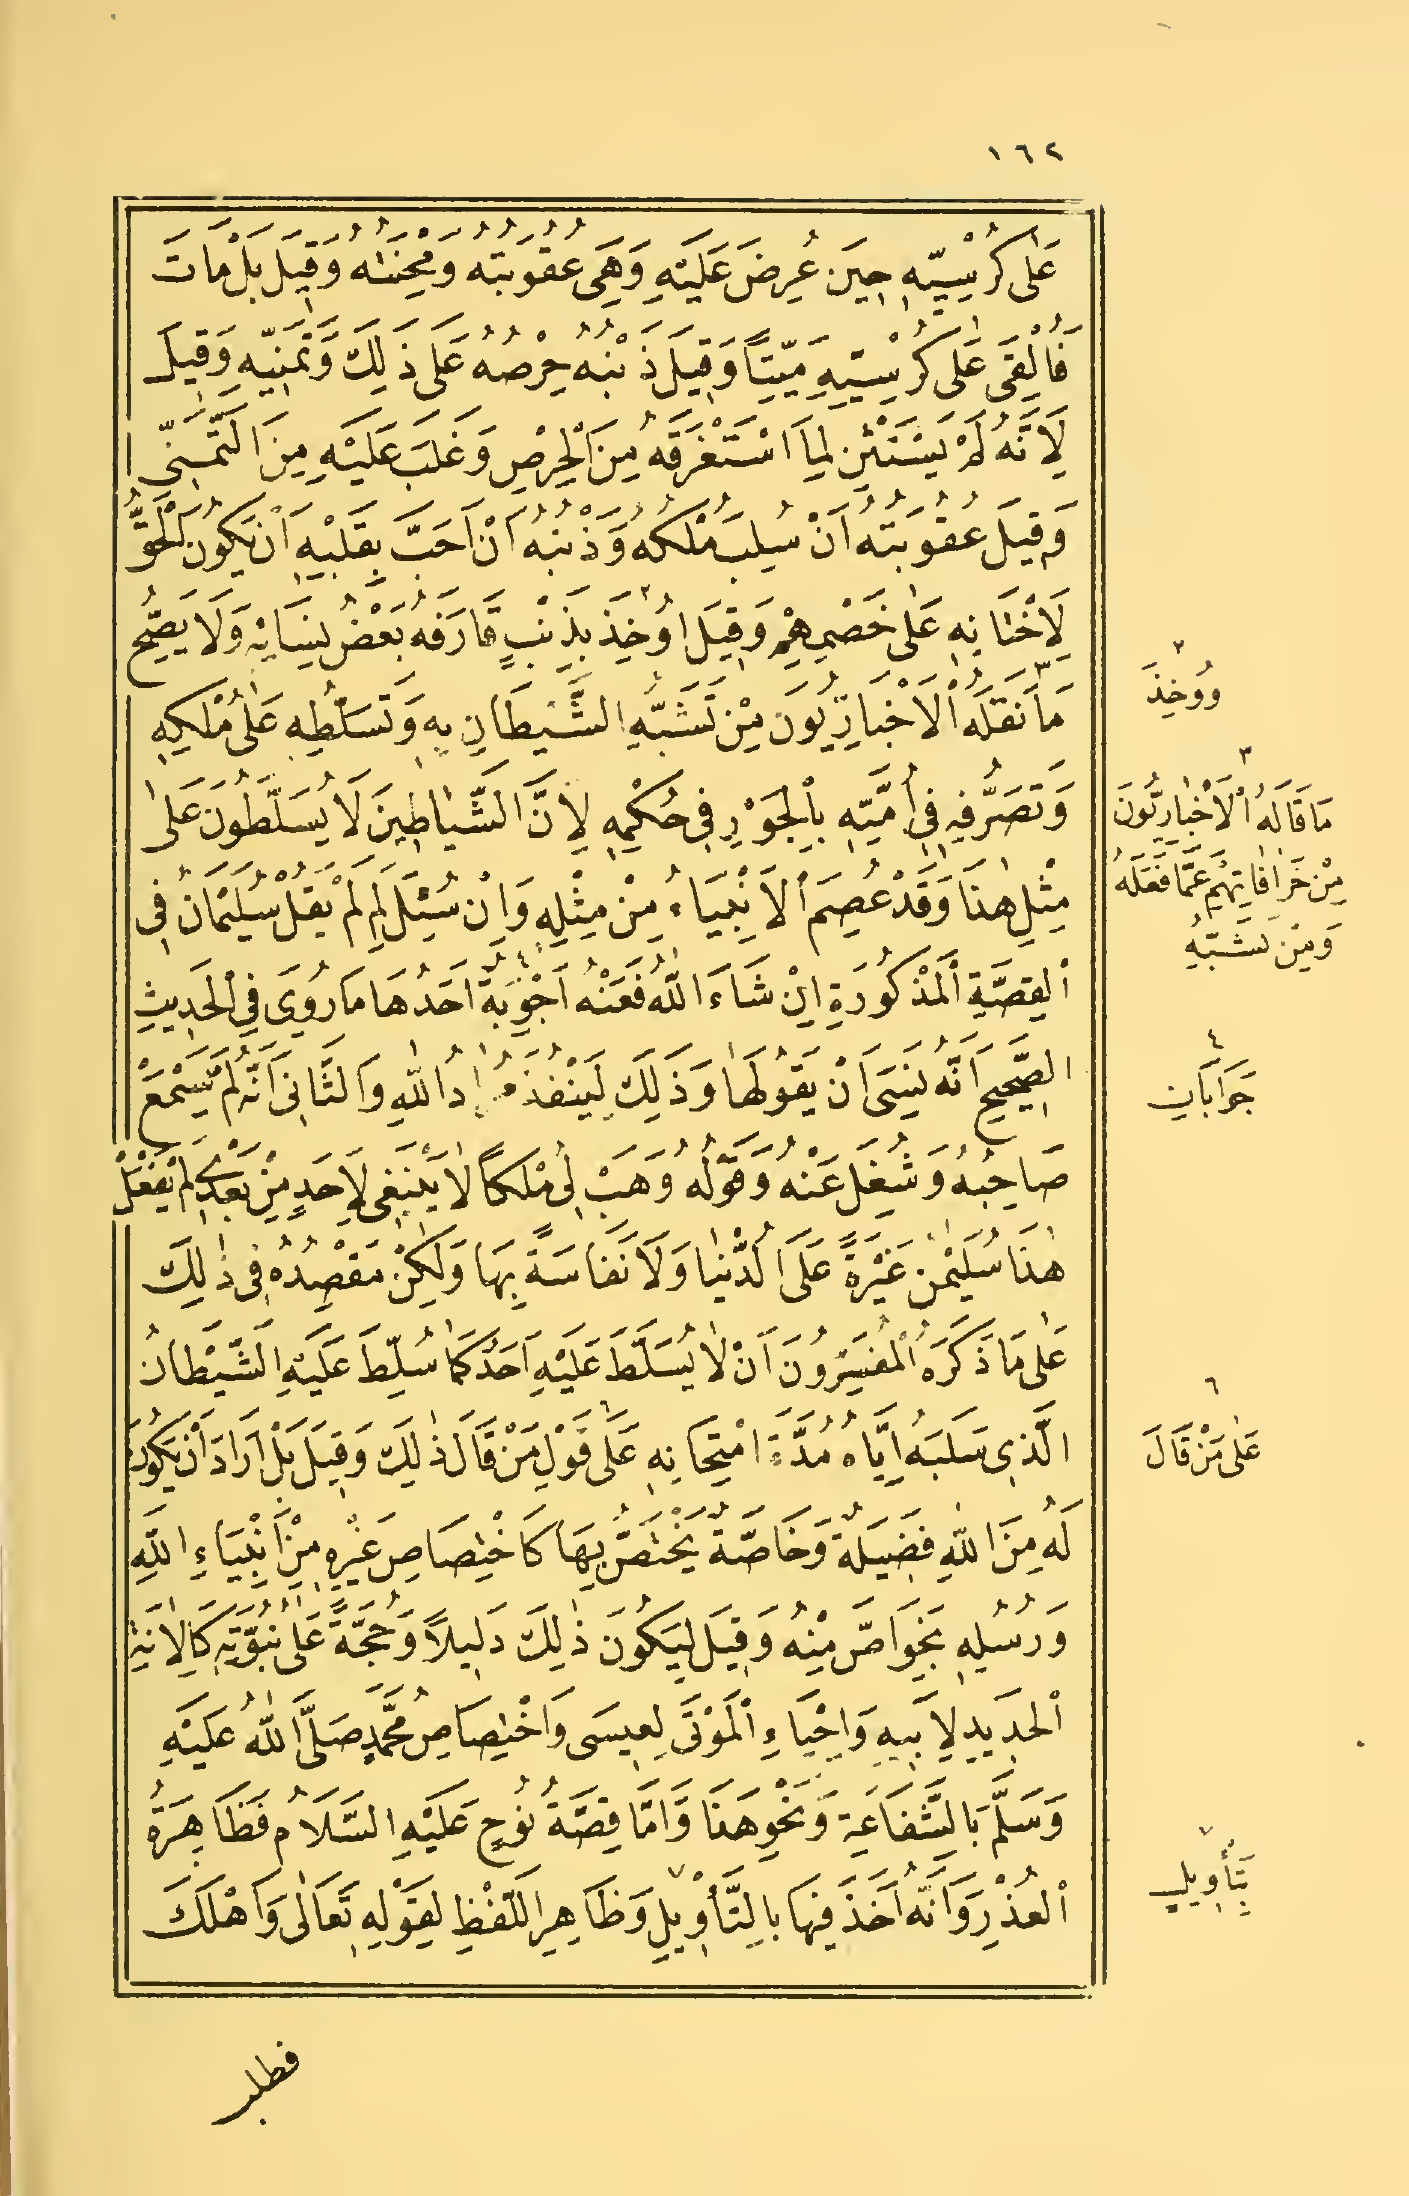 ١٦٢
عَلٰى كُرْسِيِّهِ حِينَ عُرِضَ عَلَيْهِ وَهِىَ عُقُوبَتُهُ وَمِحْنَتُهُ وَقِيلَ بَلْ مَاتَ
فَاُلْقِىَ عَلٰى كُرْسِيِّهِ مَيِّتًا وَقِيلَ ذَنْبُهُ حِرْصُهُ عَلٰى ذٰلِكَ وَتَمَنِّيهِ وَقِيلَ
لِاَنَّهُ لَمْ يَسْتَثْنِ لِمَا اسْتَغْرَقَهُ مِنَ الْحِرْصِ وَغَلَبَ عَلَيْهِ مِنَ التَّمَنِّى
وَقِيلَ عُقُوبَتُهُ اَنْ سُلِبَ مُلْكَهُ وَذَنْبُهُ اَنْ اَحَبَّ بِقَلْبِهِ اَنْ يَكُونَ الْحَقُّ
لِاَخْتَانِهِ عَلٰى خَصْمِهِمْ وَقِيلَ اُوخِذَ٢ بِذَنْبٍ قَارَفَهُ بَعْضُ نِسَائِهِ وَلَا يَصِحُّ
مَا٣ نَقَلَهُ الْاَخْبَارِيُّونَ مِنْ تَشَبُّهِ الشَّيْطَانِ بِهِ وَتَسَلُّطِهِ عَلٰى مُلْكِهِ
وَتَصَرُّفِهِ فِى اُمَّتِهِ بِالْجَوْرِ فِى حُكْمِهِ لِاَنَّ الشَّيَاطِينَ لَا يُسَلَّطُونَ عَلٰى
مِثْلِ هٰذَا وَقَدْ عُصِمَ الْاَنْبِيَاءُ مِنْ مِثْلِهِ وَاِنْ سُئِلَ لِمَ لَمْ يَقُلْ سُلَيْمَانُ فِى
الْقِصَّةِ الْمَذْكُورَةِ اِنْ شَاءَ اللّٰهُ فَعَنْهُ اَجْوِبَةٌ٤ اَحَدُهَا مَا رُوِىَ فِى الْحَدِيثِ
الصَّحِيحِ اَنَّهُ نَسِىَ اَنْ يَقُولَهَا وَذٰلِكَ لِيَنْفُذَ مُرَادُ اللّٰهِ وَالثَّانِى اَنَّهُ لَمْ يَسْمَعْ
صَاحِبَهُ وَشُغِلَ عَنْهُ وَقَوْلُهُ وَهَبْ لِى مُلْكًا لَا يَنْبَغِى لِاَحَدٍ مِنْ بَعْدِى لَمْ يَفْعَلْ
هٰذَا سُلَيْمٰنُ غَيْرَةً عَلَى الدُّنْيَا وَلَا نَفَاسَةً بِهَا وَلٰكِنْ مَقْصِدُهُ فِى ذٰلِكَ
عَلٰى مَا ذَكَرَهُ الْمُفَسِّرُونَ اَنْ لَا يُسَلَّطَ عَلَيْهِ اَحَدٌ كَمَا سُلِّطَ عَلَيْهِ الشَّيْطَانُ
الَّذِى سَلَبَهُ اِيَّاهُ مُدَّةَ امْتِحَانِهِ عَلٰى٦ قَوْلِ مَنْ قَالَ ذٰلِكَ وَقِيلَ بَلْ اَرَادَ اَنْ يَكُونَ
لَهُ مِنَ اللّٰهِ فَضِيلَةٌ وَخَاصَّةٌ يَخْتَصُّ بِهَا كَاخْتِصَاصِ غَيْرِهِ مِنْ اَنْبِيَاءِ اللّٰهِ
وَرُسُلِهِ بِخَوَاصَّ مِنْهُ وَقِيلَ لِيَكُونَ ذٰلِكَ دَلِيلًا وَحُجَّةً عَلٰى نُبُوَّتِهِ كَاِلَانَةِ
الْحَدِيدِ لِاَبِيهِ وَاِحْيَاءِ الْمَوْتٰى لِعِيسَى وَاخْتِصَاصِ مُحَمَّدٍ صَلَّى اللّٰهُ عَلَيْهِ
وَسَلَّمَ بِالشَّفَاعَةِ وَنَحْوِ هٰذَا وَاَمَّا قِصَّةُ نُوحٍ عَلَيْهِ السَّلَامُ فَظَاهِرَةُ
الْعُذْرِ وَاَنَّهُ اَخَذَ فِيهَا بِالتَّأْوِيلِ٧ وَظَاهِرِ اللَّفْظِ لِقَوْلِهِ تَعَالٰى وَاَهْلَكَ
٢
وَوُخِذَ
٣
مَا قَالَهُ الْاَخْبَارِيُّونَ
مِنْ خَرَافَاتِهِمْ عَمَّا فَعَلَهُ
وَمِنْ تَشَبُّهِ
٤
جَوَابَانِ
٦
عَلٰى مَنْ قَالَ
٧
بِتَأْوِيلِ
فطلب